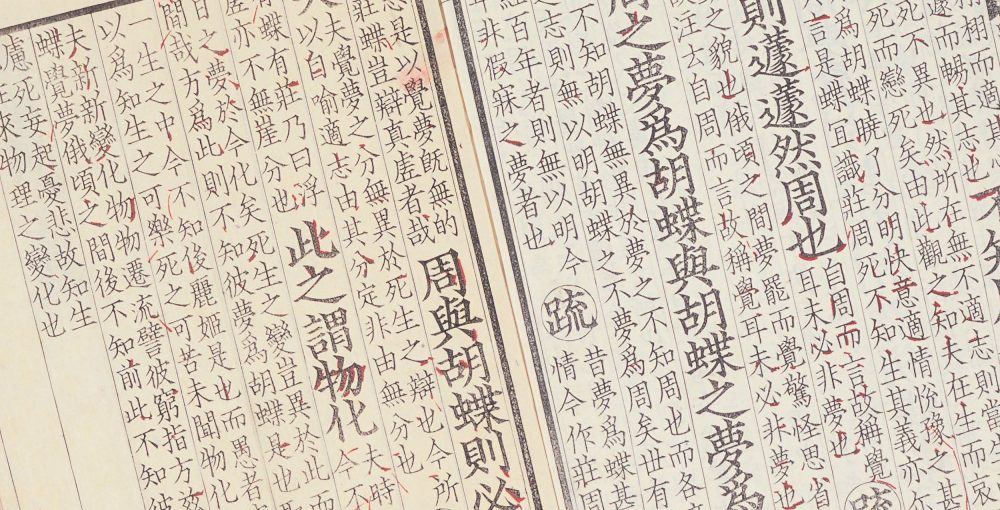 羽相
遂而暢其志也
不異也然所在無不適志則當生而
死而戀死矣由此觀之知夫在生而哀
為胡蝶曉了分明快意適情悅豫之甚
言是蝶宜識莊周死不知生其義亦尔
則蘧蘧然周也
自周而言故稱覺
耳未必非夢也
疏
之貌也俄頃之間夢罷而覺驚怪思省
云自周而言故稱覺耳未必非夢也
周之夢為胡蝶與胡蝶之夢為
不知胡蝶無異於夢之不知周也而各
之志則無以明胡蝶之不夢為周矣世有
百年者則無以明今
非假寐之夢者也
疏
昔夢為蝶甚
情今作莊周
是以覺夢既無的
蝶豈辯真虛者哉
周與胡蝶則必
夫覺夢之分無異於死生之辯也今所
以自喻適志由其分定非由無分也
蝶有莊乃曰浮
亦不無崖分也
此之謂物化
夫時
今不
日之夢於今化矣死生之變豈異於此而
哉方為此則不知彼夢為胡蝶是也
一生之中今不知後麗姬是也而愚者
以為知生之可樂死之可苦未聞物化
夫新新變化物物遷流譬彼窮指方茲
蝶覺夢俄頃之間後不知前此不知彼
慮死妄起憂悲故知生
物理之變化也